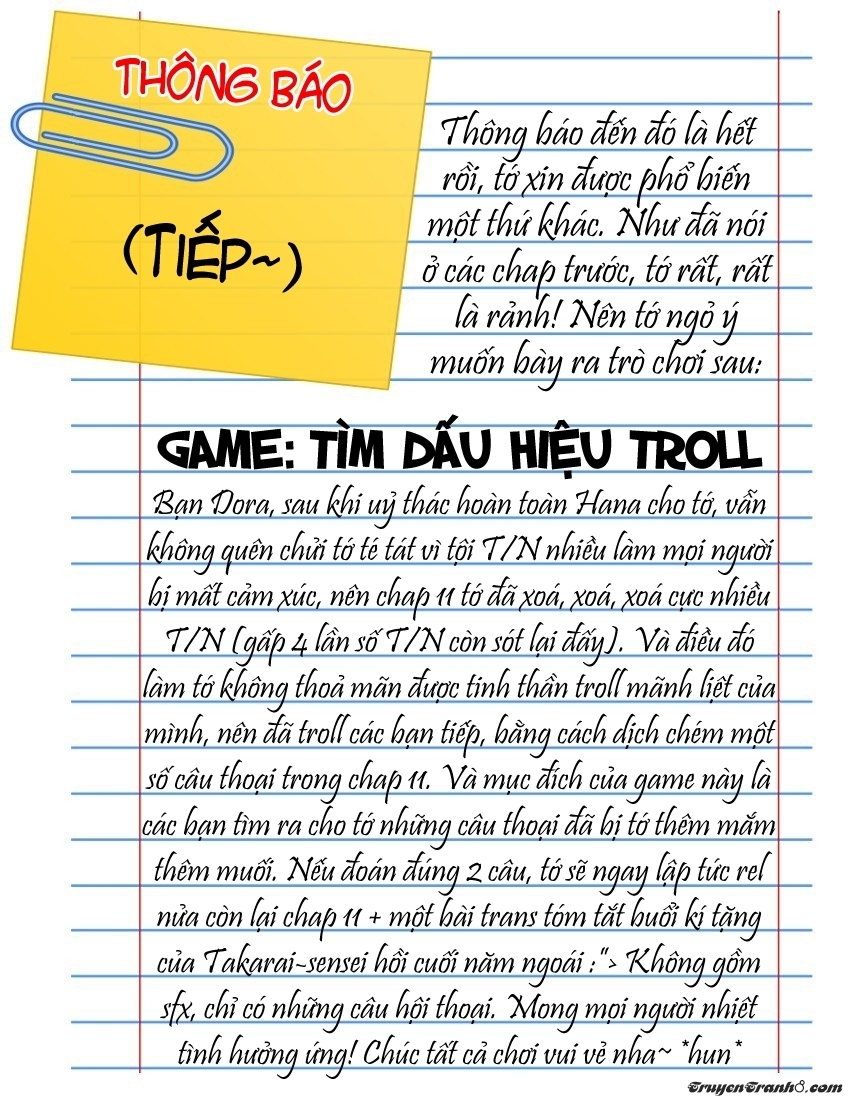 THÔNG BÁO
(TIẾP~)
Thông báo đến đó là hết
rồi, tớ xin được phổ biến
một thứ khác. Như đã nói
ở các chap trước, tớ rất, rất
là rảnh! Nên tớ ngỏ ý
muốn bày ra trò chơi sau:
GAME: TÌM DẤU HIỆU TROLL
Bạn Dora, sau khi uỷ thác hoàn toàn Hana cho tớ, vẫn
không quên chửi tớ té tát vì tội T/N nhiều làm mọi người
bị mất cảm xúc, nên chap 11 tớ đã xoá, xoá, xoá cực nhiều
T/N (gấp 4 lần số T/N còn sót lại đấy). Và điều đó
làm tớ không thoả mãn được tinh thần troll mãnh liệt của
mình, nên đã troll các bạn tiếp, bằng cách dịch chém một
số câu thoại trong chap 11. Và mục đích của game này là
các bạn tìm ra cho tớ những câu thoại đã bị tớ thêm mắm
thêm muối. Nếu đoán đúng 2 câu, tớ sẽ ngay lập tức rel
nửa còn lại chap 11 + một bài trans tóm tắt buổi kí tặng
của Takarai-sensei hồi cuối năm ngoái :"> Không gồm
sfx, chỉ có những câu hội thoại. Mong mọi người nhiệt
tình hưởng ứng! Chúc tất cả chơi vui vẻ nha~ *hun*
TruyenTranh8.com